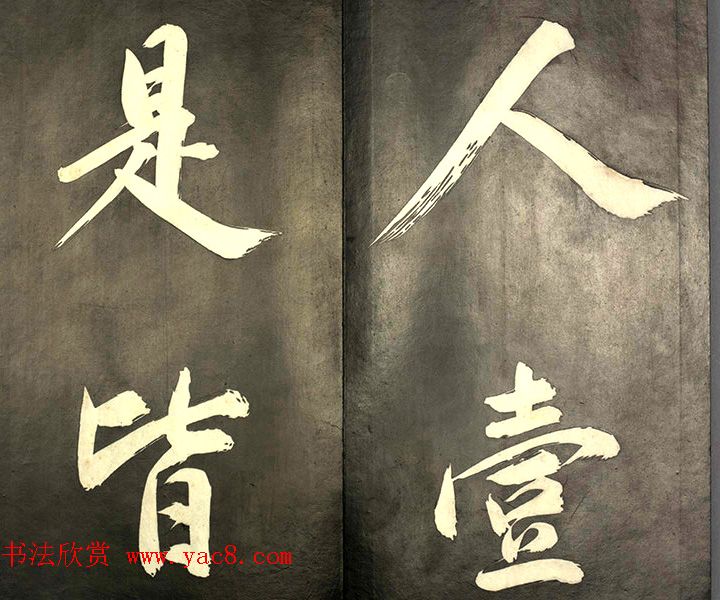 人壹
是皆
书法欣赏 www.yac8.com